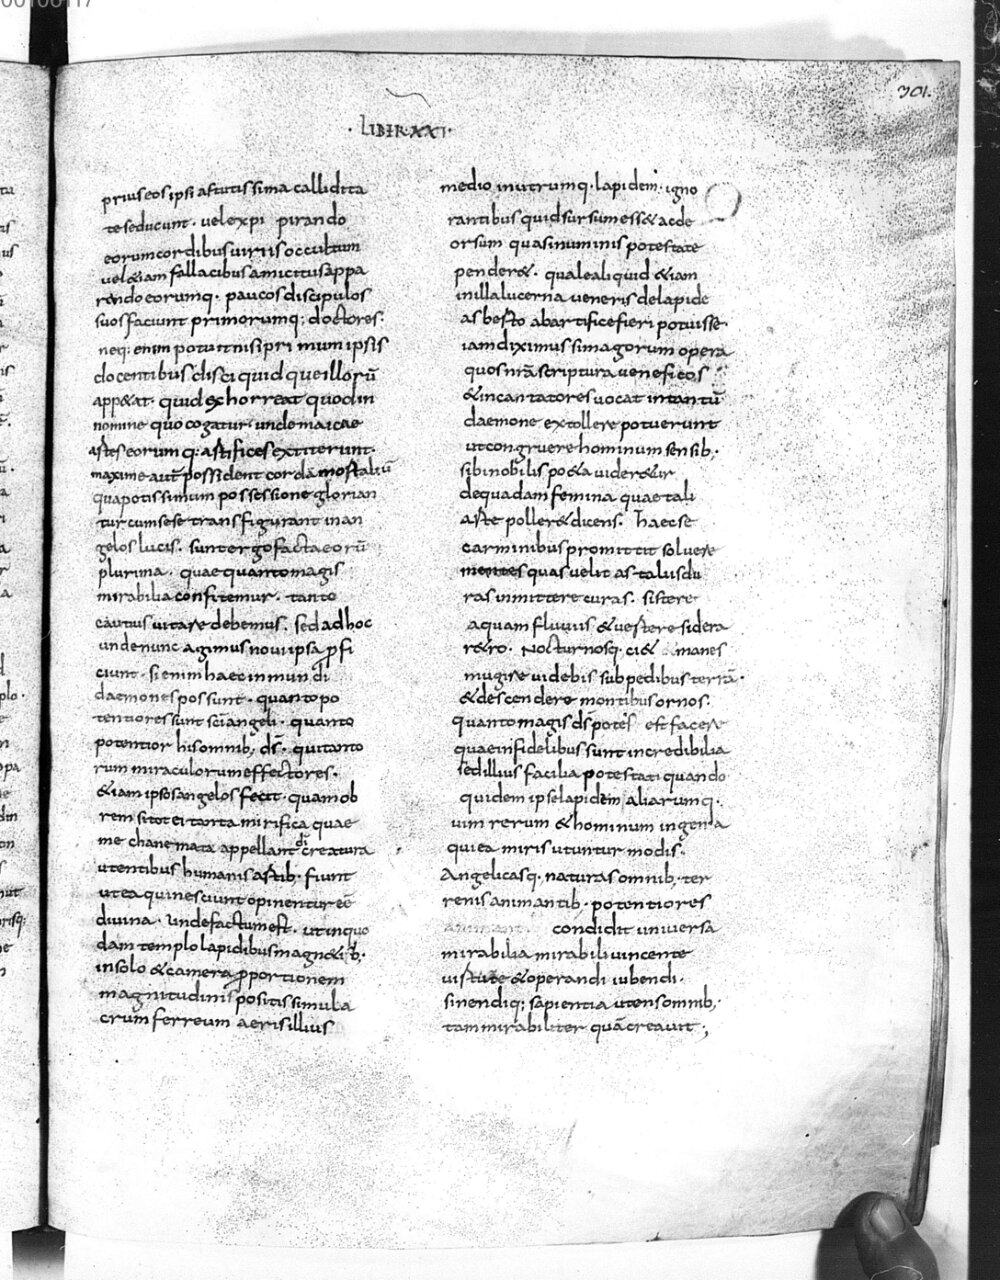 301.
· LIBER XXI ·
prius eos ipsi astutissima callidita
te seducunt · vel expi pirando
eorum cordibus virus occultum
vel &iam fallacibus amicitiis appa
rendo eorumq · paucos discipulos
suos faciunt primorumq; doctores ·
neq; enim potuit nisi primum ipsis
docentibus disci quid queillorū
app&at · quid exhorreat quod in
nomine quo cogatur unde maicae
artes eorumq; artifices extiterunt ·
maxime aut possident corda mortaliū
qua potissimum possessione glorian
tur cum sese transfigurant in an
gelos lucis · sunt ergo facta eorū
plurima · quae quanto magis
mirabilia confitemur · tanto
cautius vitare debemus · sed ad hoc
unde nunc agimus novi ipsa profi
ciunt · si enim haec inmundi
daemones possunt · quanto po
tentiores sunt sci angeli · quanto
potentior his omnib; ds · qui tanto
rum miraculorum effectores ·
&iam ipsos angelos fecit · quam ob
rem si tot et tanta mirifica quae
mechanemata appellant di creatura
utentibus humanis artib; fiunt
ut ea qui nesciunt opinentur eē
divina · unde factum est · ut in quo
dam templo lapidibus magn&ib;
in solo & camera proportionem
magnitudinis positis simula
crum ferreum aeris illius
medio inutrumq · lapidem · igno
rantibus quid sursum ess& ac de
orsum quasi numinis potestate
pender& · quale aliquid &iam
in illa lucerna veneris de lapide
asbesto ab artifice fieri potuisse ·
iam diximus si magorum opera
quos nrā scriptura veneficos
& incantatores vocat in tantū
daemone extollere potuerunt
ut congruere hominum sensib;
sibi nobilis po&a vider&ur
de quadam femina quae tali
arte poller& dicens · haec se
carminibus promittit solvere
mentes quas velit ast aliis du
ras inmittere curas · sistere
aquam fluviis & vertere sidera
r&ro · Nocturnosq · ci& manes
mugire videbis sub pedibus terrā ·
& descendere montibus ornos ·
quanto magis ds potes est facere
quae infidelibus sunt incredibilia
sed illius facilia potestati quando
quidem ipse lapidem aliarumq ·
vim rerum & hominum ingenia
qui ea miris utuntur modis ·
Angelicasq · naturas omnib; ter
renis animantib; potentiores
condidit universa
mirabilia mirabili vincente
virtute & operandi iubendi ·
sinendiq; sapientia utens omnib;
tam mirabiliter quā creavit ;